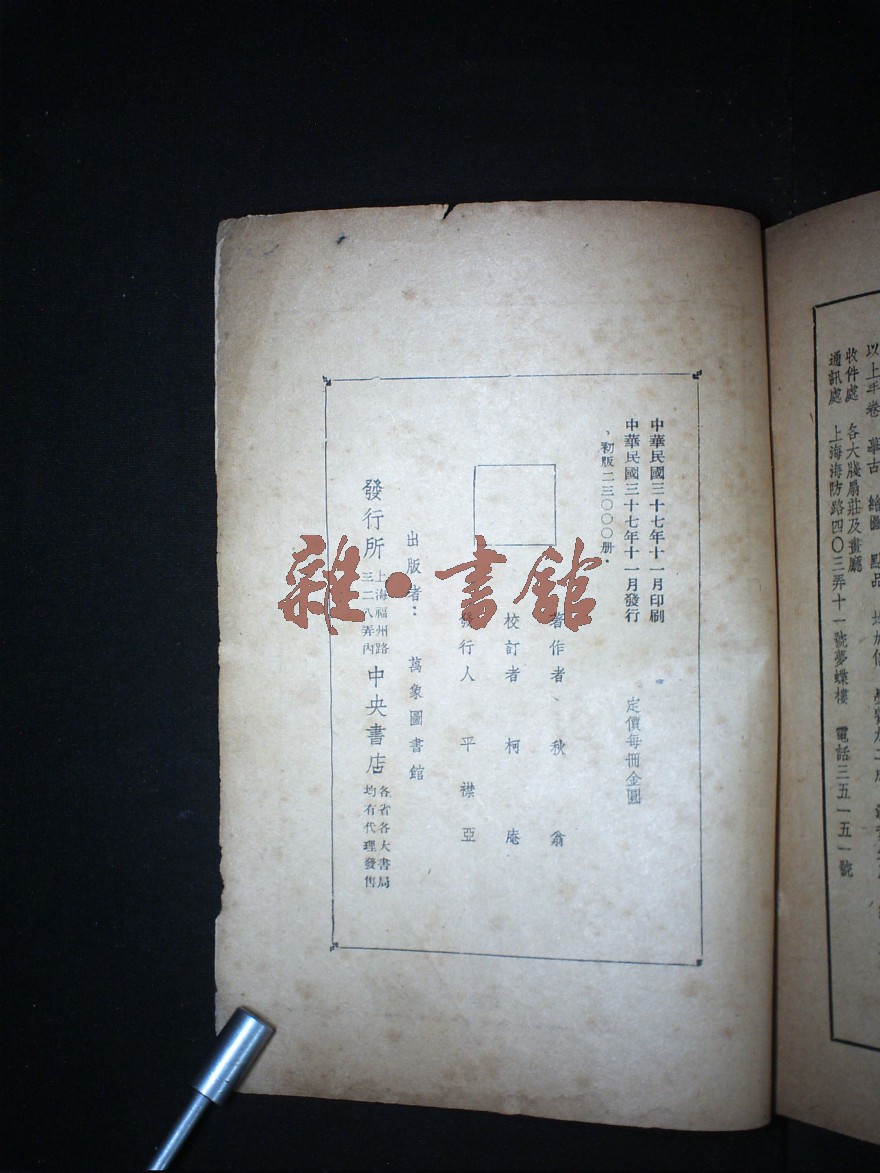 中華民國三十七年十一月印刷
中華民國三十七年十一月發行
、初版二三〇〇〇册．
定價每冊金圓
著作者、秋翁
校訂者 柯庵
發行人 平襟亞
出版者： 萬象圖書館
發行所
上海福州路
三二八弄內
中央書店
各省各大書局
均有代理發售
雜・書館
以上手卷
收件處 各大牋扇莊及畫廳
通訊處 上海海防路四〇三弄十一號夢蝶樓 電話三五一五一號